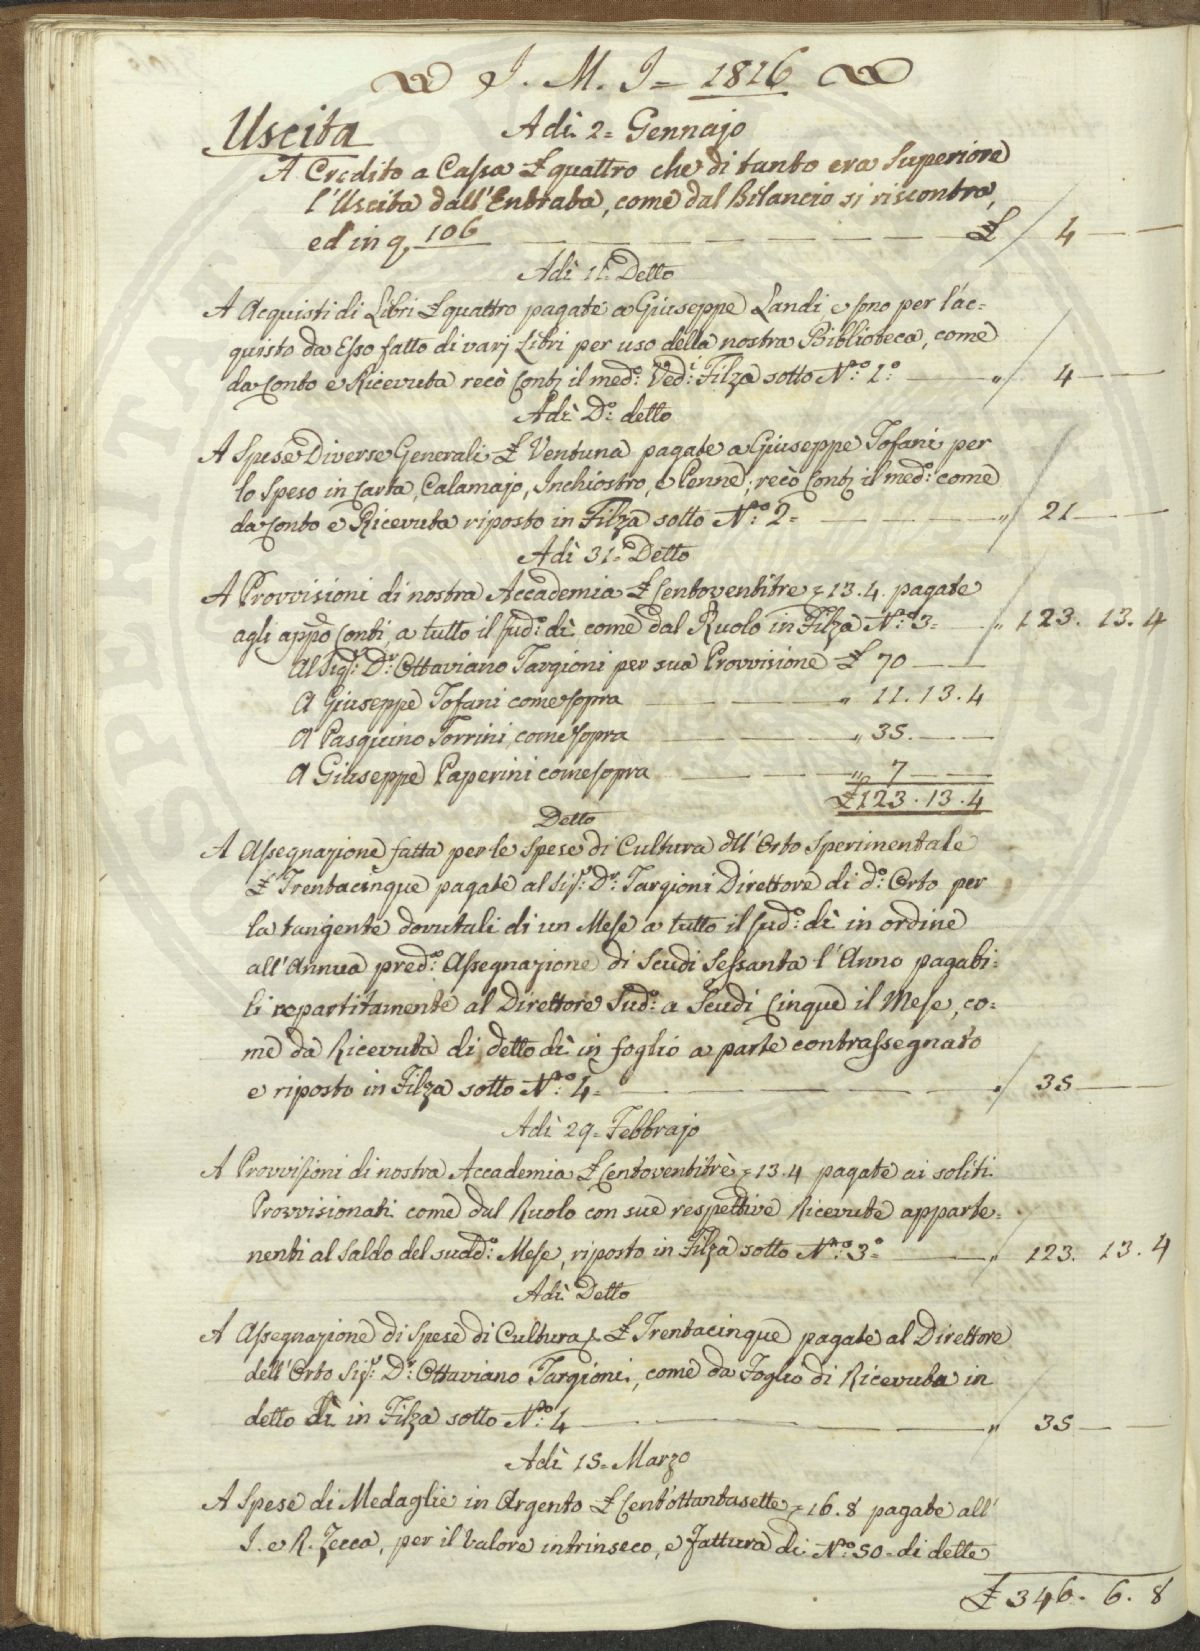 J. M. J= 1816
Uscita Adì 2= Gennajo
A Credito a Cassa £ quattro che di tanto era Superiore
l'Uscita dall'Entrata, come dal Bilancio si riscontra,
ed in q. 106 £ 4
Adì 11. Detto
A Acquisti di Libri £ quattro pagate a Giuseppe Landi e sono per l'ac=
quisto da Esso fatto di varj Libri per uso della nostra Biblioteca, come
da Conto e Ricevuta recò Conti il med.o Ved.i Filza sotto N.o 1.o " 4
Adì D.o detto
A Spese Diverse Generali £ Ventuna pagate a Giuseppe Tofani per
lo Speso in Carta, Calamajo, Inchiostro, e Penne; recò Conti il med.o come
da Conto e Ricevuta riposto in Filza sotto N.o 2= " 21
Adì 31= Detto
A Provvisioni di nostra Accademia £ Centoventitre, 13.4. pagate
agli appo Conti a tutto il sud.o dì come dal Ruolo in Filza N.o 3= " 123. 13. 4
Al Sig.r D.r Ottaviano Targioni per sua Provvisione £ 70
A Giuseppe Tofani come sopra " 11. 13. 4
A Pasquino Torrini come sopra " 35.
A Giuseppe Paperini come sopra " 7
£ 123. 13. 4
Detto
A Assegnazione fatta per le Spese di Cultura dell'Orto Sperimentale
£ Trentacinque pagate al Sig.r D.r Targioni Direttore di d.o Orto per
la tangente dovutali di un Mese a tutto il sud.o dì in ordine
all'Annua pred.a Assegnazione di Scudi Sessanta l'Anno pagabi=
li repartitamente al Direttore Sud.o a Scudi Cinque il Mese, co=
me da Ricevuta di detto dì in foglio a parte contrassegnato
e riposto in Filza sotto N.o 4= " 35
Adì 29= Febbrajo
A Provvisioni di nostra Accademia £ Centoventitrè, 13.4 pagate ai soliti
Provvisionati come dal Ruolo con sue respettive Ricevute apparte=
nenti al Saldo del sudd.o Mese, riposto in Filza sotto N.o 3.o= " 123. 13. 4
Adì Detto
A Assegnazione di Spese di Cultura £ Trentacinque pagate al Direttore
dell'Orto Sig.r D.r Ottaviano Targioni, come da Foglio di Ricevuta in
detto dì in Filza sotto N.o 4 " 35
Adì 15= Marzo
A Spese di Medaglie in Argento £ Cent'ottantasette, 16.8 pagate all'
I. e R. Zecca, per il Valore intrinseco, e Fattura di N.o 50= di dette
£ 346. 6. 8